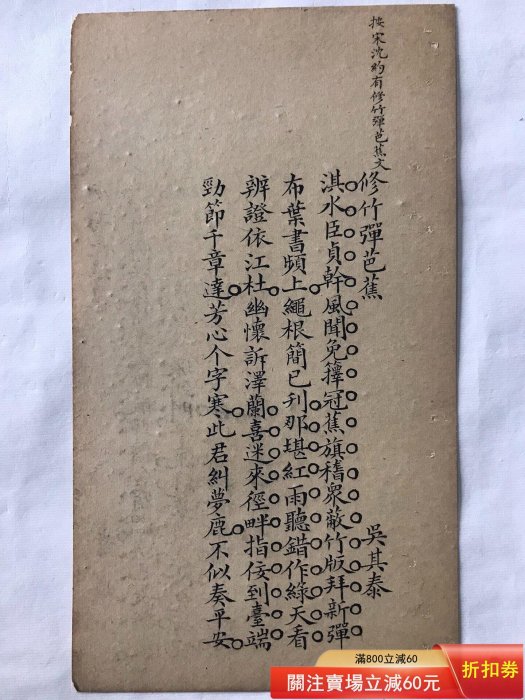 按宋沈約有修竹彈芭蕉文
修竹彈芭蕉 吳其泰
淇水臣貞幹風聞免籜冠蕉旗稽衆蔽竹版拜新彈
布葉書頻上繩根簡已刋那堪紅雨聽錯作綠天看
辨證依江杜幽懷訴澤蘭喜迷來徑畔指佞到臺端
勁節千章達芳心个字寒此君糾夢鹿不似奏平安
滿800立減60
關注賣場立減60元
折扣券